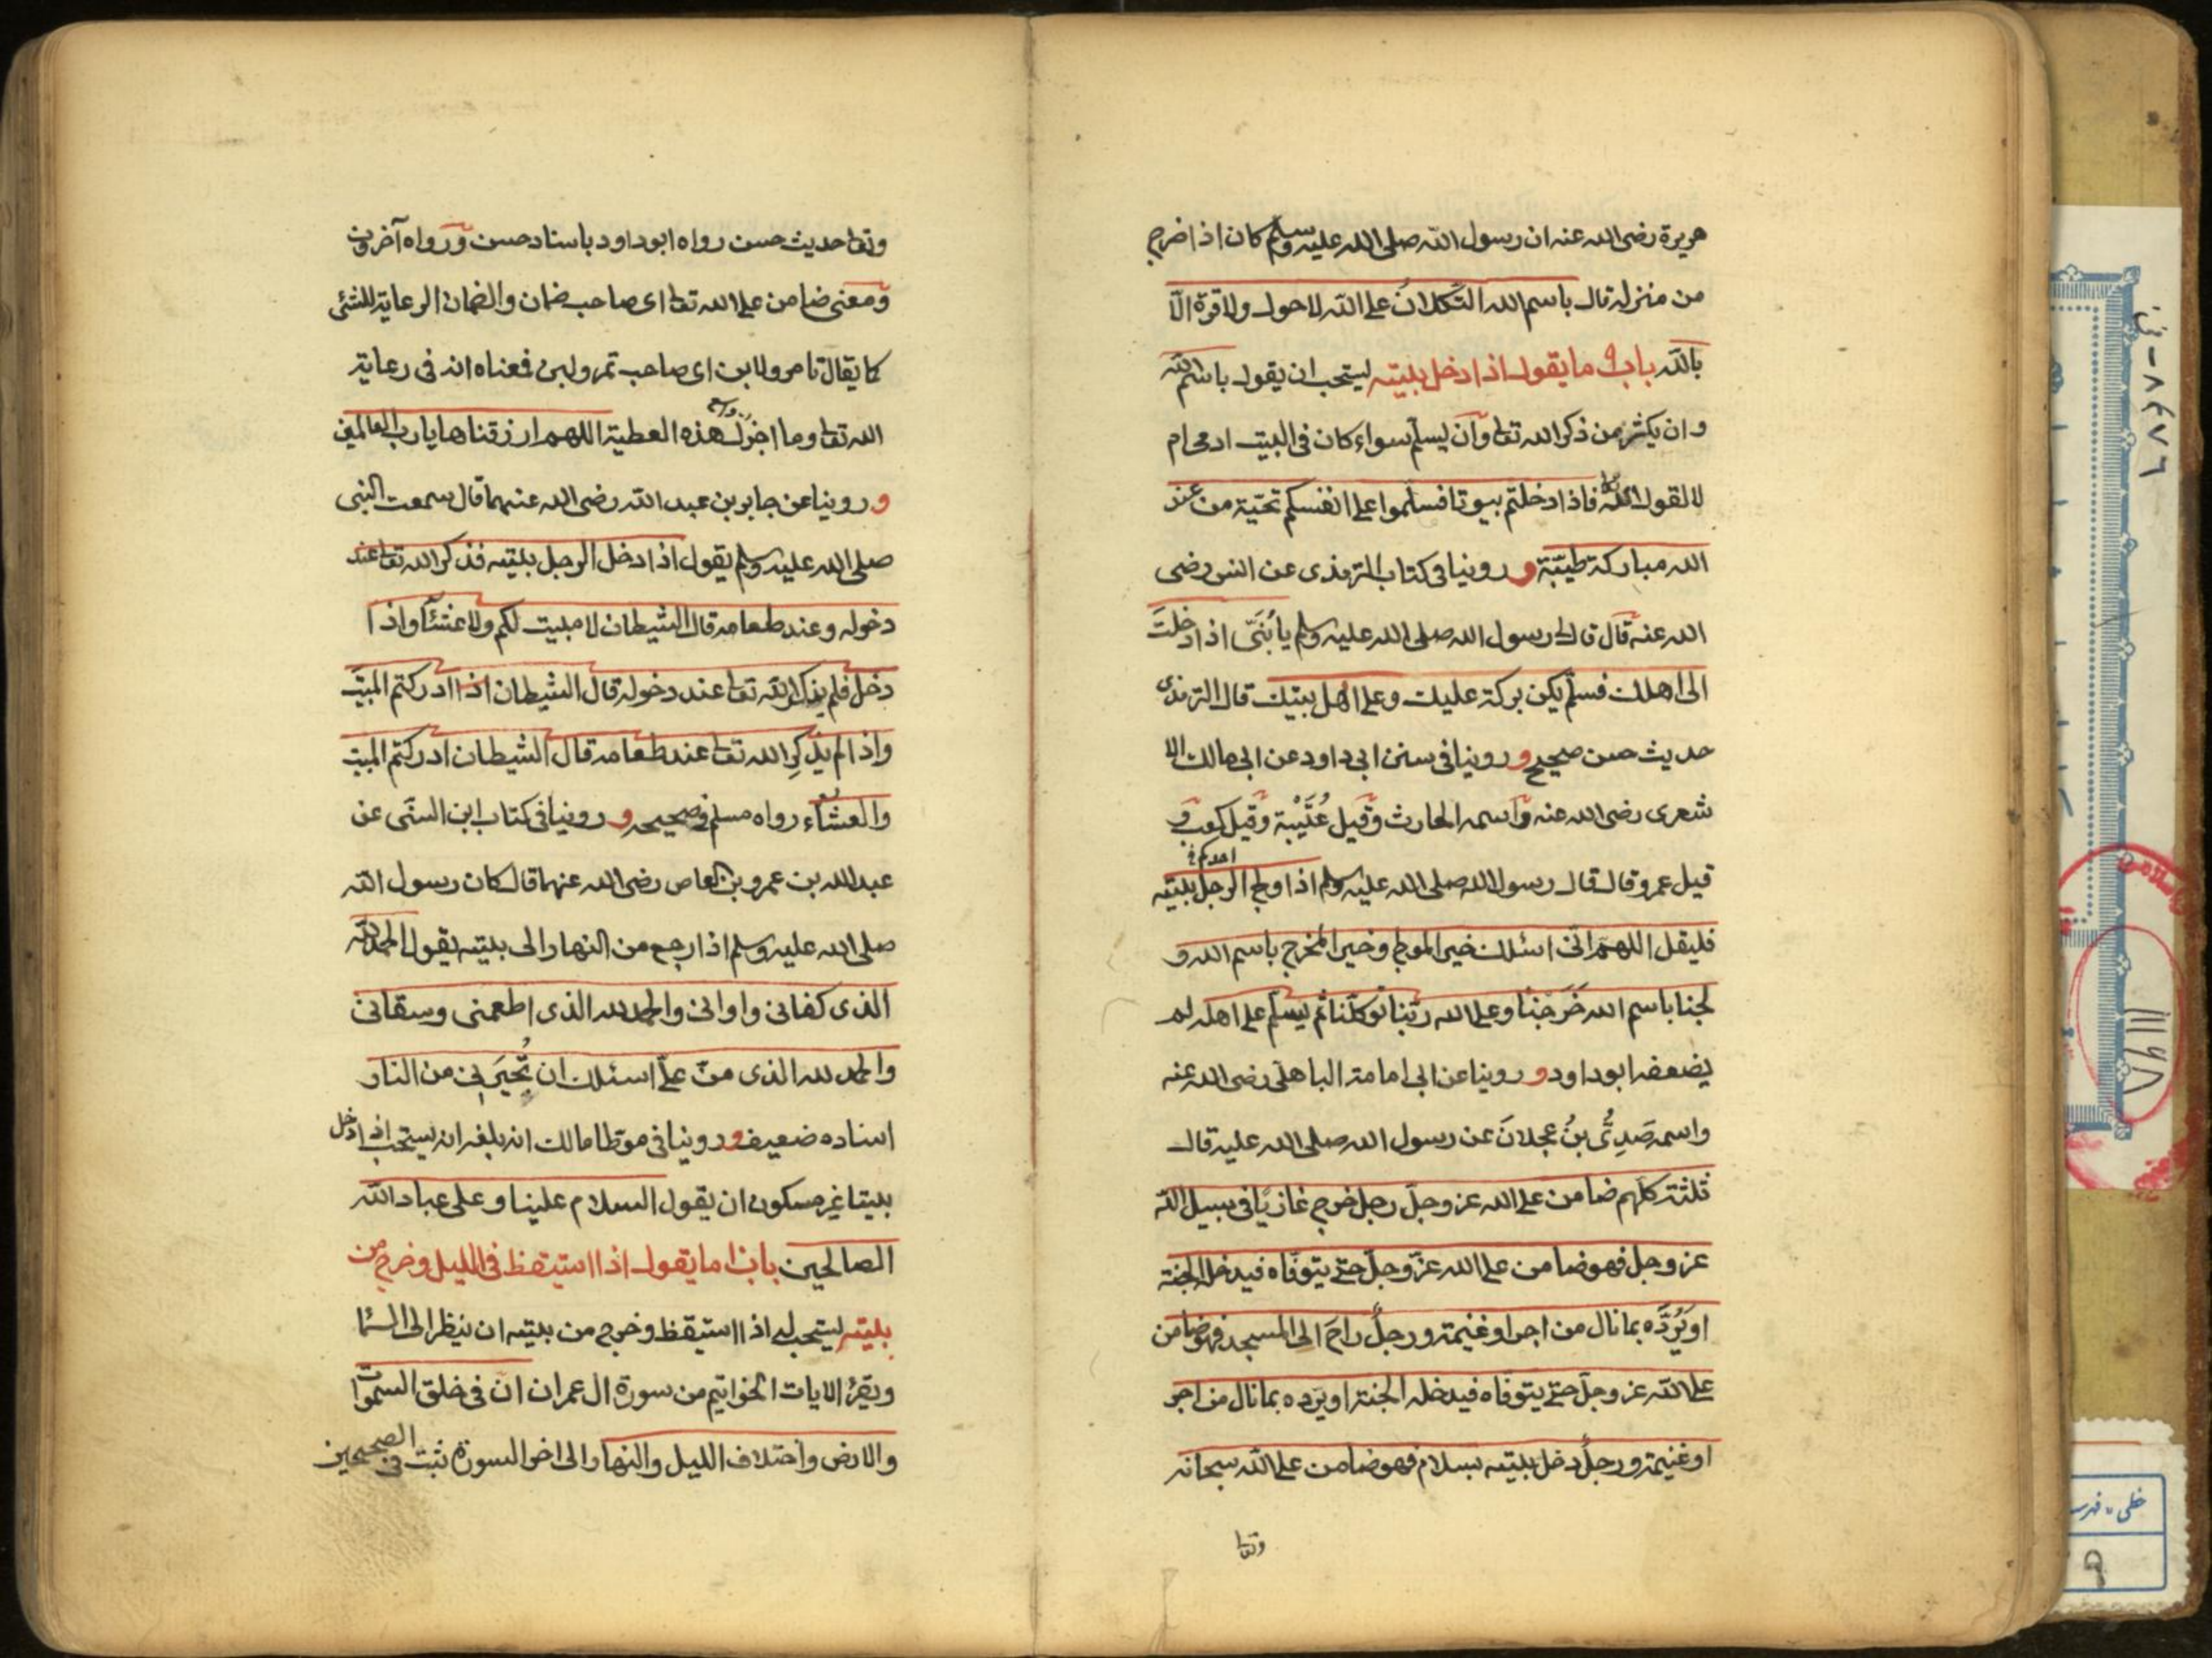 هريرة رضى الله عنه ان رسول الله صلى الله عليه وسلم كان اذا خرج
من منزله قال باسم الله التُكلانُ على الله لا حول ولا قوة الّا
بالله باب ما يقول اذا دخل بيته يستحب ان يقول باسم الله
وان يكثر من ذكر الله تعا وآن يسلّم سواء كان فى البيت ادمى ام
لا لقول الله تعا فاذا دخلتم بيوتا فسلّموا على انفسكم تحيّة من عند
الله مباركة طيّبة و روينا فى كتاب الترمذى عن انس رضى
الله عنه قال قال لى رسول الله صلى الله عليه وسلم يا بُنَىّ اذا دخلتَ
الى اهلك فسلّم يكن بركة عليك وعلى اهل بيتك قال الترمذى
حديث حسن صحيح و روينا فى سنن ابى داود عن ابى مالك الا
شعرى رضى الله عنه وآسمه الحارث وقيل عُبَيْد وقيل كعب و
قيل عمرو قال قال رسول الله صلى الله عليه وسلم اذا ولج الرجل بيته
احدكم
فليقل اللهم انى اسئلك خير المولج وخير المخرج باسم الله و
لجنا باسم الله خَرَجْنا وعلى الله ربّنا توكّلنا ثم ليسلّم على اهله لم
يضعفه ابو داود و روينا عن ابى امامة الباهلى رضى الله عنه
واسمه صَدِىُّ بنُ عجلانَ عن رسول الله صلى الله عليه قال
ثلثة كلهم ضامن على الله عز وجلّ رجل خرج غازيًا فى سبيل الله
عز وجل فهو ضامن على الله عزّ وجلّ حتى يتوفّاه فيدخله الجنة
او يَرُدَّه بما نال من اجر او غنيمة ورجلٌ راحَ الى المسجد فهو ضامن
على الله عز وجلّ حتى يتوفاه فيدخله الجنة او يرده بما نال من اجر
او غنيمة ورجلٌ دخل بيته بسلام فهو ضامن على الله سبحانه
وتعا
وتعا حديث حسن رواه ابو داود باسناد حسن وَرواه آخرون
وَمعنى ضامن على الله تعا اى صاحب ضمان والضمان الرعاية للشئى
كما يقال تامر ولابن اى صاحب تمر ولبن فمعناه انه فى رعاية
الله تعا وما اجزل هذه العطية اللهم ارزقناها يا رب العالمين
و روينا عن جابر بن عبد الله رضى الله عنهما قال سمعت النبى
صلى الله عليه وسلم يقول اذا دخل الرجل بيته فذكر الله تعا عند
دخوله وعند طعامه قال الشيطان لا مبيت لكم ولا عشاء واذا
دخل فلم يذكر الله تعا عند دخوله قال الشيطان اذا ادركتم المبيت
واذا لم يذكرِ الله تعا عند طعامه قال الشيطان ادركتم المبيت
والعشاء رواه مسلم فى صحيحه و روينا فى كتاب ابن السنّى عن
عبد الله بن عمرو بن العاص رضى الله عنهما قال كان رسول الله
صلى الله عليه وسلم اذا رجع من النهار الى بيته يقول الحمد لله
الذى كفانى واوانى والحمد لله الذى اطعمنى وسقانى
والحمد لله الذى منّ علىّ اسئلك ان تُجيَرنى من النار
اسناده ضعيف و روينا فى موطا مالك انه بلغه انه يستحب اذا دخل
بيتا غير مسكون ان يقول السلام علينا وعلى عباد الله
الصالحين باب ما يقول اذا استيقظ فى الليل وخرج من
بيته يستحب له اذا استيقظ وخرج من بيته ان ينظر الى السما
ويقرُ الايات الخواتيم من سورة ال عمران انّ فى خلق السموات
والارض واختلاف الليل والنهار الى اخر السورة ثبت فى الصحيحين